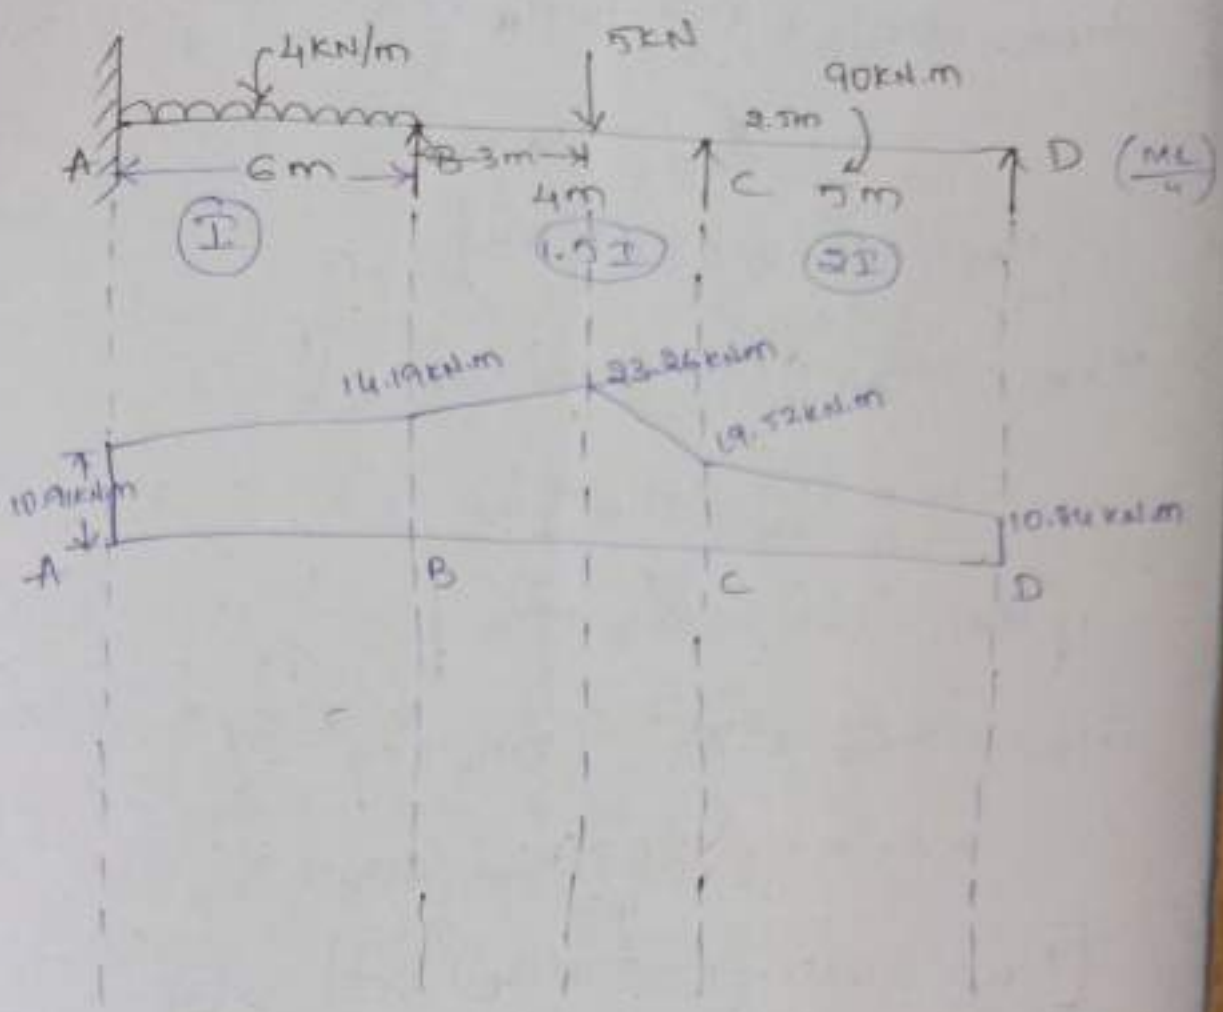 4KN/m
5KN
90KN.m
2.5m
A
6m
B
3m
C
D
(ML/4)
4m
5m
I
1.5I
2I
14.19KN.m
23.24KNm
19.52KN.m
10.91KN.m
10.74KN.m
A
B
C
D